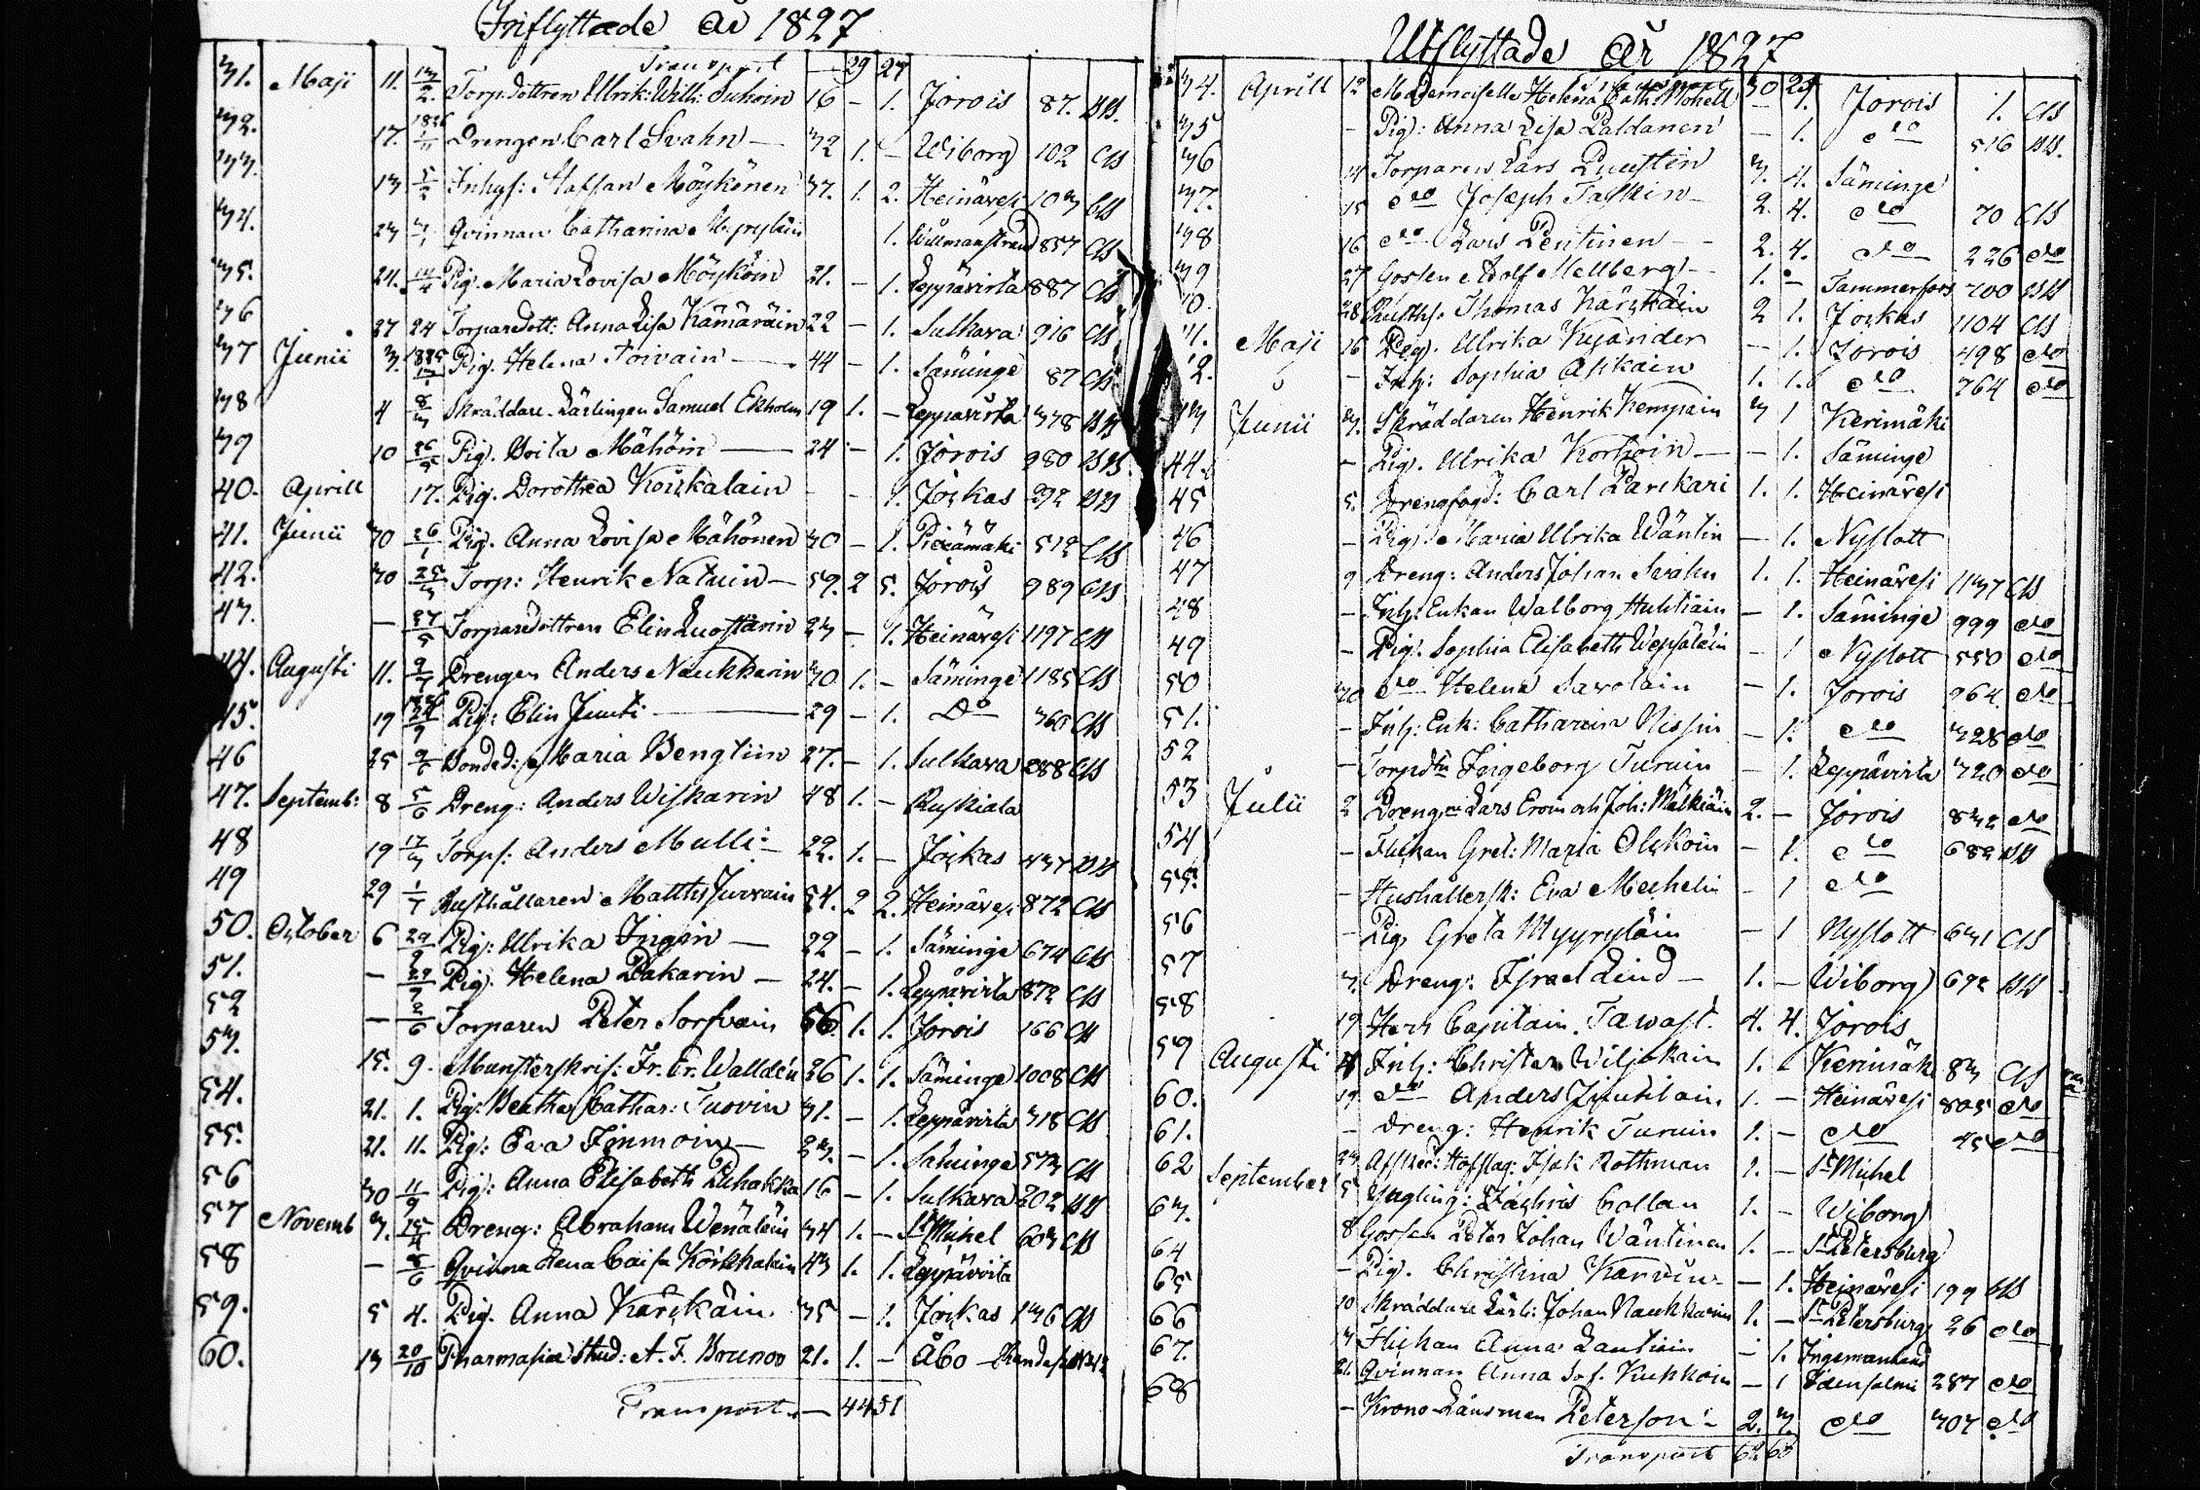 Inflyttade år 1827
Transport — 29 27
31. Maji 11. 13/2. Torp:dottren Ulrik: Wilh: Suhoin 16 – 1. Jorois 87. BB.
32. 17. 1826 Drengen Carl Svahn — 32 1. – Wiborg 102 CB
33. 13 5/2 Inhys: Staffan Möykönen 37. 1. 2. Heinävesi 103 CB
34. 23 Qvinnan Catharina Myyryläin 1. Willmanstrand 857 CB
35. 24. 14/4 Pig. Maria Lovisa Möyköin 21. – 1. Leppävirta 887 CB
36 27 24 Torparedott: Anna Lisa Kämäräin 22 – 1. Sulkava 916 CB
37 Junii 3. 1825 Pig. Helena Toivain — 44 – 1. Säminge 87 CB
38 4 8/3 Skräddare Lärlingen Samuel Ekholm 19 1. – Leppävirta 378 BB
39 10 26/5 Pig. Brita Mähöin — 24 – 1. Jorois 980 BB.
40. Aprill 17. Pig. Dorothea Koukalain – – 1. Jockas 292 BB
41. Junii 30 26/1 Pig. Anna Lovisa Mähönen 30 – 1. Piexämäki 512 CB
42. 30 25/3 Torp: Henrik Natuin — 59. 2 5. Jorois 989 CB
43. — 27/5 Torparedottren Elin Luostarin 23 – 1. Heinävesi 1197 CB
44. Augusti 11. Drengen Anders Naukkarin 30 1. – Säminge 1185 CB
45. 19 Pig: Elin Junti — 29 – 1. Do 360 CB
46 25 9/6 Bonded: Maria Bengtiin 27. – 1. Sulkava 288 CB
47. Septemb: 8 5/6 Dreng: Anders Wiskarin 48 1. – Ruskiala
48 19 17/3 Torps: Anders Mulli – 22. 1. – Jockas 437 BB
49 29 1/7 Rusthållaren Matths Jurvain 54. 2 2. Heinävesi 872 CB
50. October 6 29/9 Pig: Ulrika Ingin — 22 – 1. Säminge 674 CB
51. — 29/7 Pig. Helena Pakarin — 24. – 1. Leppävirta 872 CB
52 — 2/6 Torparen Peter Sorsvain 56. 1. 1. Jorois 166 CB
53. 15. 9. Munsterskrif: Fr. Er. Walldén 26 1. 1. Säminge 1008 CB
54. 21. 1. Pig: Beatha Cathar: Tuovin 31. – 1. Leppävirta 318 CB
55. 21. 11. Pig: Eva Immoin — 23. – 1. Säminge 573 CB
56 30 11/9 Pig: Anna Elisabeth Puhakka 16 – 1. Sulkava 202 BB
57 Novemb 3. 15/4 Dreng: Abraham Wenäläin 34 1. – St Michel 603 CB
58 — 5/6 Qvinna Lena Caisa Kärkkäin 43 1. 1. Leppävirta
59. 5 4. Pig. Anna Kärckäin. 35 – 1. Jockas 136 CB
60. 13 20/10 Pharmasiæ Stud: A. F. Brunoo 21. 1. – Åbo
Transport — 44 51
Utflyttade år 1827
Transport 30 29
34. Aprill 12 Mademoiselle Helena Cath: Mohell — 1. Jorois 1. CB
35 – Pig: Anna Lisa Paldanen — 1. dto 516 BB.
36 14 Torparen Lars Luustin 3. 4. Säminge
37. 15 dto Joseph Taskin — 2. 4. dto 70 CB
38 16 dto Lars Pentinen — 2. 4. dto 226 dto
39 27 Gossen Adolf Mellberg — 1. – Tammerfors 700 BB
40. 28 Rusths. Thomas Kärckäin 2 1. Jockas 1104 CB
41. Maji 16 Pig. Ulrika Kyander — 1. Jorois 498 dto
42. – Inh: Sophia Asikain 1. 1. dto 764 dto
43 Junii 3. Skräddaren Henrik Kempain 3 1 Kerimäki
44. – Pig. Ulrika Korhoin — – 1. Säminge
45 5. Drengfogd: Carl Parckari 1. 1. Heinävesi
46 – Pig: Maria Ulrika Wäntin — 1. Nyslott
47 9 Dreng: Anders Johan Svahn 1. 1. Heinävesi 1137 CB
48 – Inh: Enkan Walborg Huhtiain — 1. Säminge 999 dto
49 – Pig. Sophia Elisabeth Wepsäläin – 1 Nyslott 550 dto
50 30 dto Helena Savolain — 1. Jorois 964. dto
51. – Inh: Enk: Catharina Nissin — 1. dto 328 dto
52 – Torpdtr Ingeborg Turuin — 1. Leppävirta 320 dto
53 Julii 2 Drengne Lars Erom och Joh: Mälkiäin 2. – Jorois 832 dto
54 – Flickan Gret: Maria Olckoin – 1. dto 682 BB
55. – Hushållersk: Eva Mechelin – 1 dto
56 – Pig. Greta Myyryläin — 1 Nyslott 631 CB
57 3. Dreng: Israel Lind — 1. – Wiborg 692 BB
58 19 Herr Capitain Tawast. 4. 4. Jorois
59 Augusti 4 Inh: Christer Wiljakain 1. – Kerimäk 83 CB
60. 19 dto Anders Juutilain 1. – Heinävesi 805 dto
61. – Dreng: Henrik Turuin 1. – dto 45 dto
62 23 Afsked: Hofslag: Isak Rothman 1. – St Michel
63. September 5 Yngling: Zachris Collan 1. – Wiborg
64 8 Gossen Peter Johan Wäntinen 1. – St Petersburg
65 – Pig. Christina Karvin — – 1. Heinävesi 199 CB
66 10 Skräddare Lärl: Johan Naukkarin 1. – St Petersburg 26 dto
67. 14 Flickan Anna Lautiain – 1. Ingermanland
68 21. Qvinnan Anna Sof. Kuhkoin – 1 Idensalmi 287 dto
– Krono Länsman Peterson – 2. 3. dto 307 dto
Transport 62 60